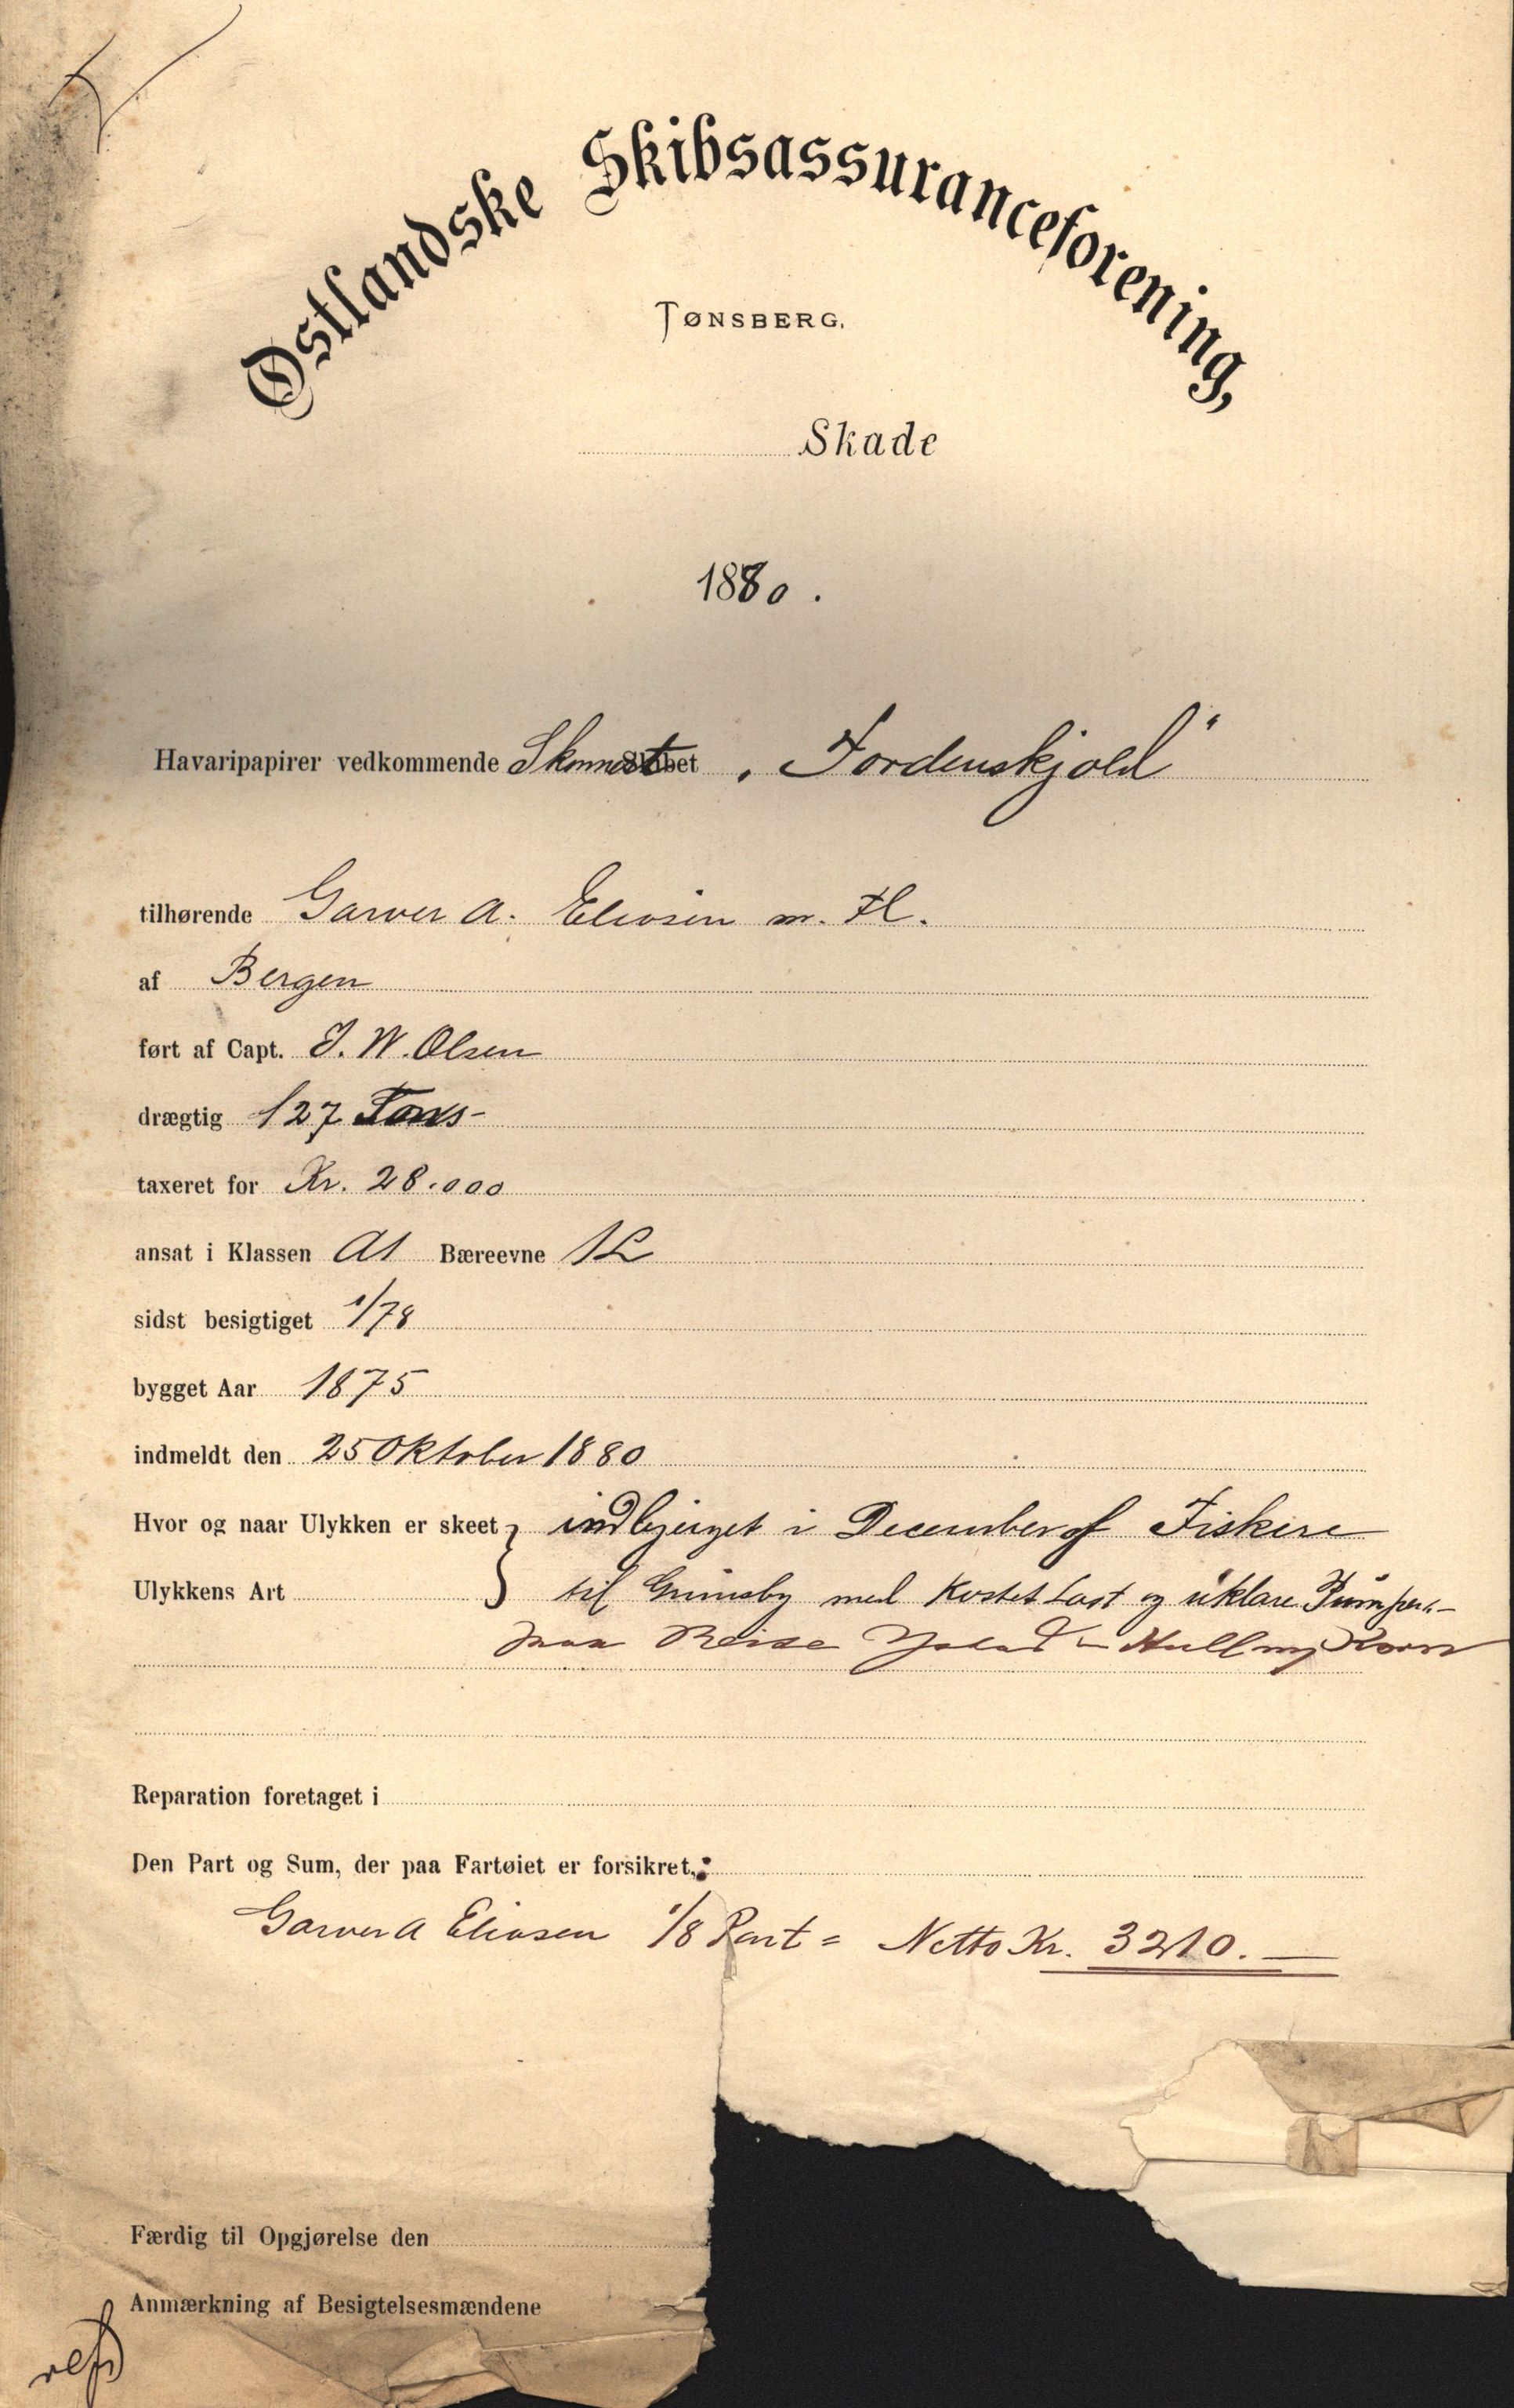 Østlandske Skibsassuranceforening,
TØNSBERG.
Skade
1880.
Havaripapirer vedkommende Skonnert Skibet „Tordenskjold"
tilhørende Garver A. Eliasen m. Fl.
af Bergen
ført af Capt. J. W. Olsen
drægtig 127 Tons-
taxeret for Kr. 28.000
ansat i Klassen A1 Bæreevne 1L
sidst besigtiget 1/78
bygget Aar 1875
indmeldt den 25 Oktober 1880
Hvor og naar Ulykken er skeet indbjerget i December af Fiskere
Ulykkens Art til Grimsby med Kastet Last og uklare Pumper.-
paa Reise Ystad - Hull m/ Korn
Reparation foretaget i
Den Part og Sum, der paa Fartøiet er forsikret.:
Garver A Eliasen 1/8 Part = Netto Kr. 3210.—
Færdig til Opgjørelse den
Anmærkning af Besigtelsesmændene